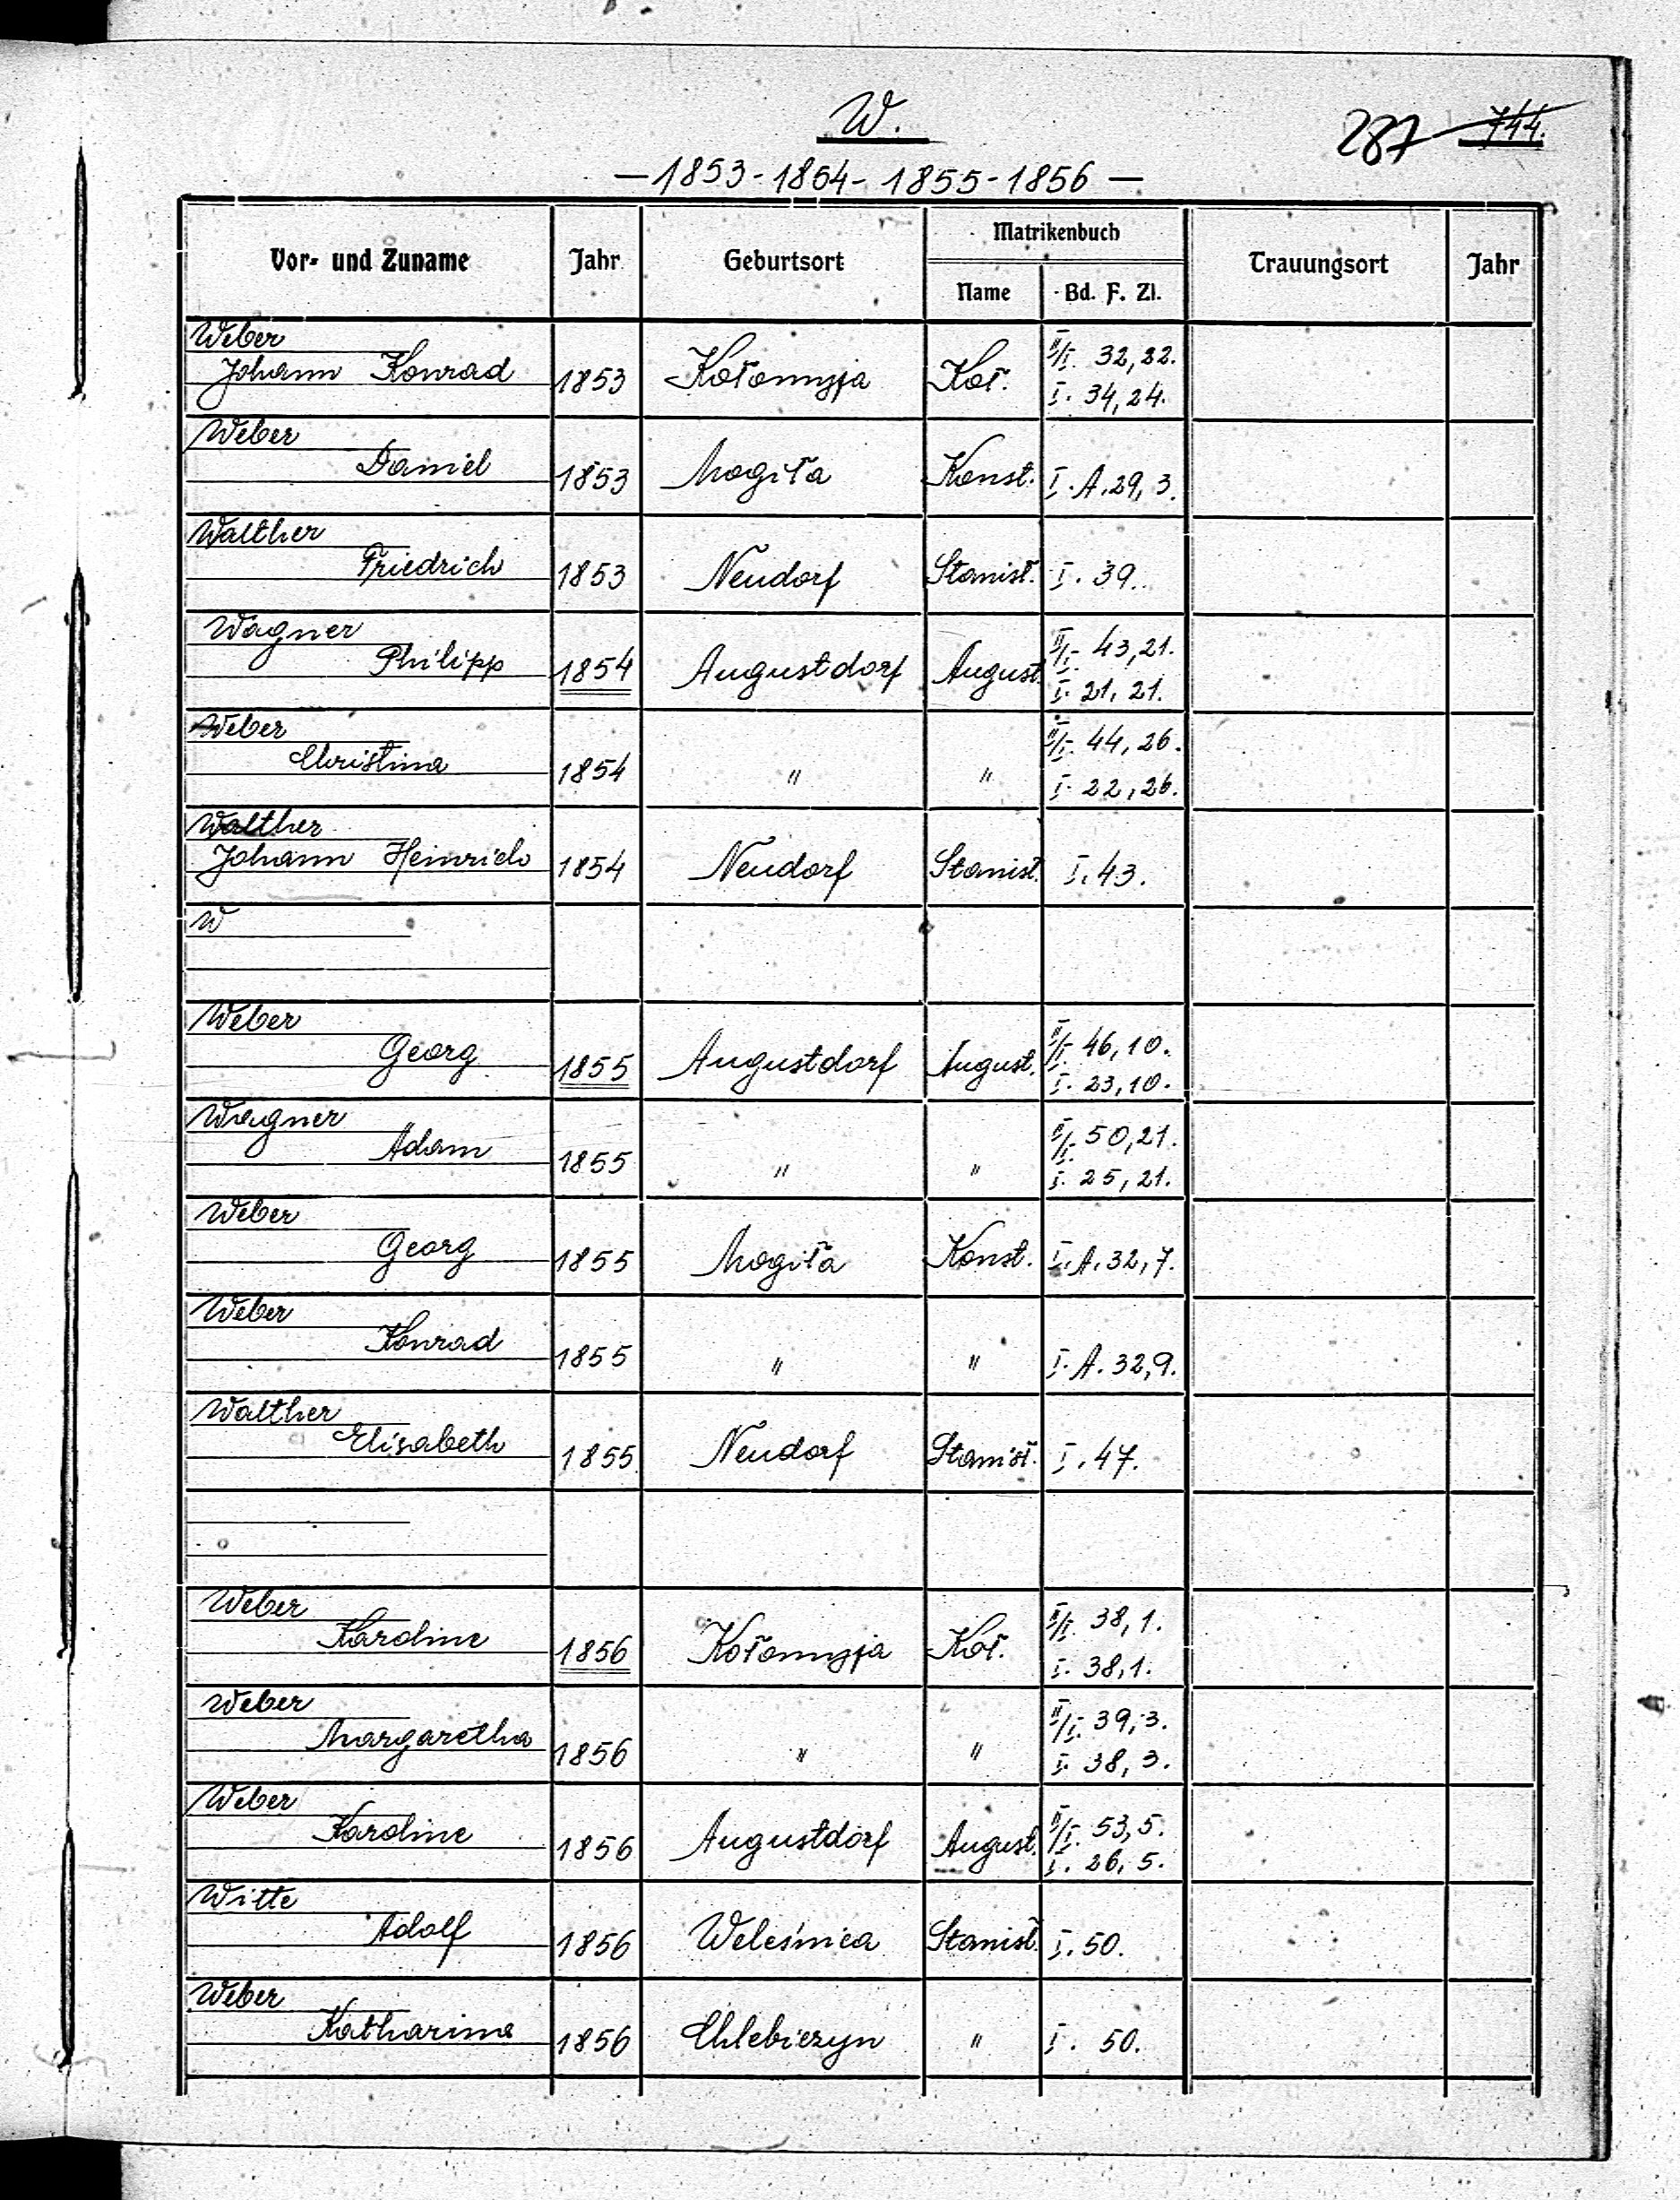 W.
287 744.
— 1853 - 1854 - 1855 - 1856 —
Vor- und Zuname Jahr Geburtsort Matrikenbuch Trauungsort Jahr
Name Bd. F. Zl.
Weber II/I. 32, 22.
Johann Konrad 1853 Kołomyja Koł. I. 34, 24.
Weber
Daniel 1853 Mogiła Konst. I. A. 29, 3.
Walther
Friedrich 1853 Neudorf Stanisł. I. 39.
Wagner II/I. 43, 21.
Philipp 1854 Augustdorf August. I. 21, 21.
Weber II/I. 44, 26.
Christina 1854 " " I. 22, 26.
Walther
Johann Heinrich 1854 Neudorf Stanisł. I. 43.
W
Weber II/I. 46, 10.
Georg 1855 Augustdorf August. I. 23, 10.
Wagner II/I. 50, 21.
Adam 1855 " " I. 25, 21.
Weber
Georg 1855 Mogiła Konst. I. A. 32, 7.
Weber
Konrad 1855 " " I. A. 32, 9.
Walther
Elisabeth 1855 Neudorf Stanisł. I. 47.
Weber II/I. 38, 1.
Karoline 1856 Kołomyja Koł. I. 38, 1.
Weber II/I. 39, 3.
Margaretha 1856 " " I. 38, 3.
Weber II/I. 53, 5.
Karoline 1856 Augustdorf August. I. 26, 5.
Witte
Adolf 1856 Weleśnica Stanisł. I. 50.
Weber
Katharina 1856 Chlebiczyn " I. 50.